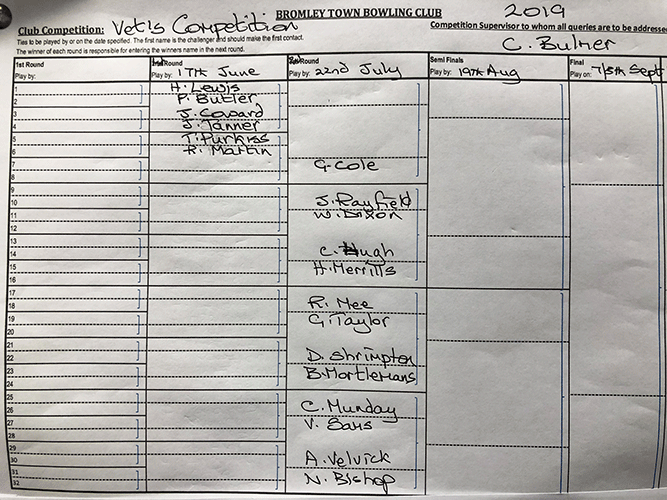 BROMLEY TOWN BOWLING CLUB
2019
Club Competition: Vet's Competition
Competition Supervisor to whom all queries are to be addresse
Ties to be played by or on the date specified. The first name is the challenger and should make the first contact.
The winner of each round is responsible for entering the winners name in the next round.
C. Bulmer
1st Round
Round
Round
Semi Finals
Final
Play by:
Play by: 17th June
Play by: 22nd July
Play by: 19th Aug
Play on: 7/8th Sept
1 H. Lewis
2 P. Butler
3 J. Coward
4 J. Tanner
5 T. Purkiss
6 R. Martin
7 G. Cole
8
9
10 J. Rayfield
11 W. Dixon
12
13
14 C. Hugh
15 H. Merritts
16
17
18 R. Mee
19 G. Taylor
20
21
22 D. Shrimpton
23 B. Mortlemans
24
25
26 C. Munday
27 V. Saus
28
29
30 A. Velvick
31
32 N. Bishop